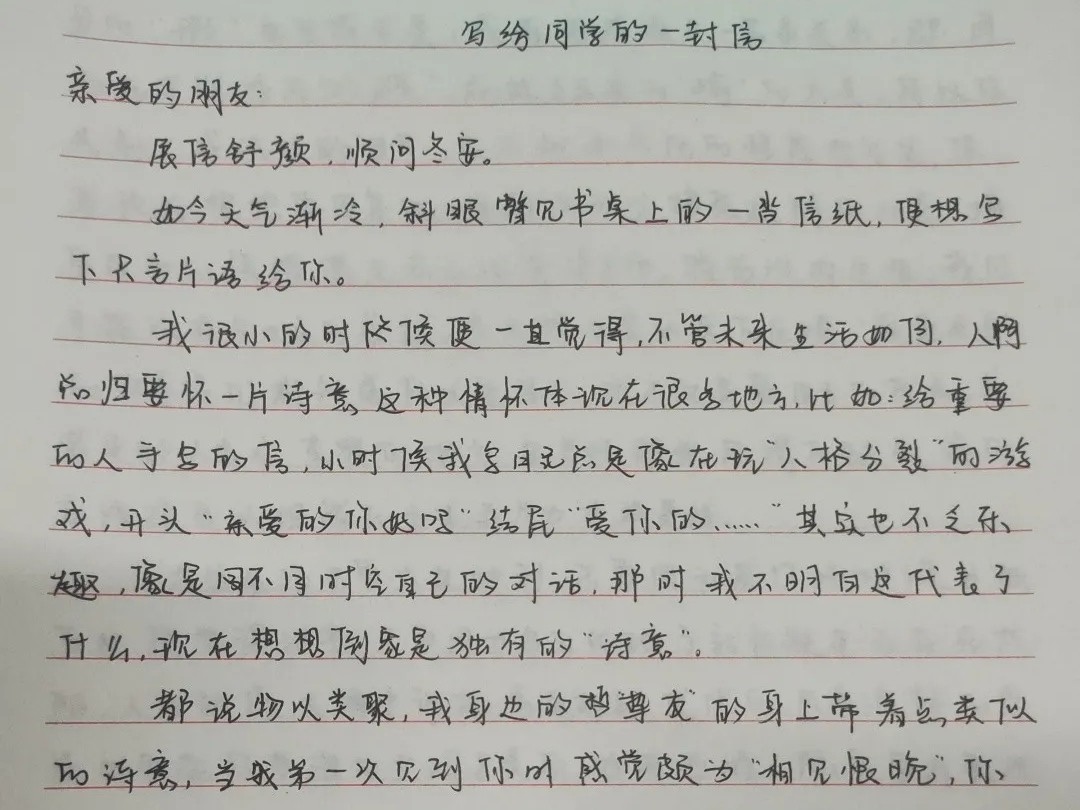 写给同学的一封信
亲爱的朋友:
展信舒颜,顺问冬安。
如今天气渐冷,斜眼瞥见书桌上的一沓信纸,便想写
下只言片语给你。
我很小的时候便一直觉得,不管未来生活如何,人啊
总归要怀一片诗意,这种情怀体现在很多地方,比如:给重要
的人手写的信,小时候我写日记总是像在玩“人格分裂”的游
戏,开头“亲爱的你好吗”结尾“爱你的……”其实也不乏乐
趣,像是同不同时空自己的对话,那时我不明白这代表了
什么,现在想想倒象是独有的“诗意”。
都说物以类聚,我身边的“尊友”的身上带着点类似
的诗意,当我第一次见到你时感觉颇为“相见恨晚”,你